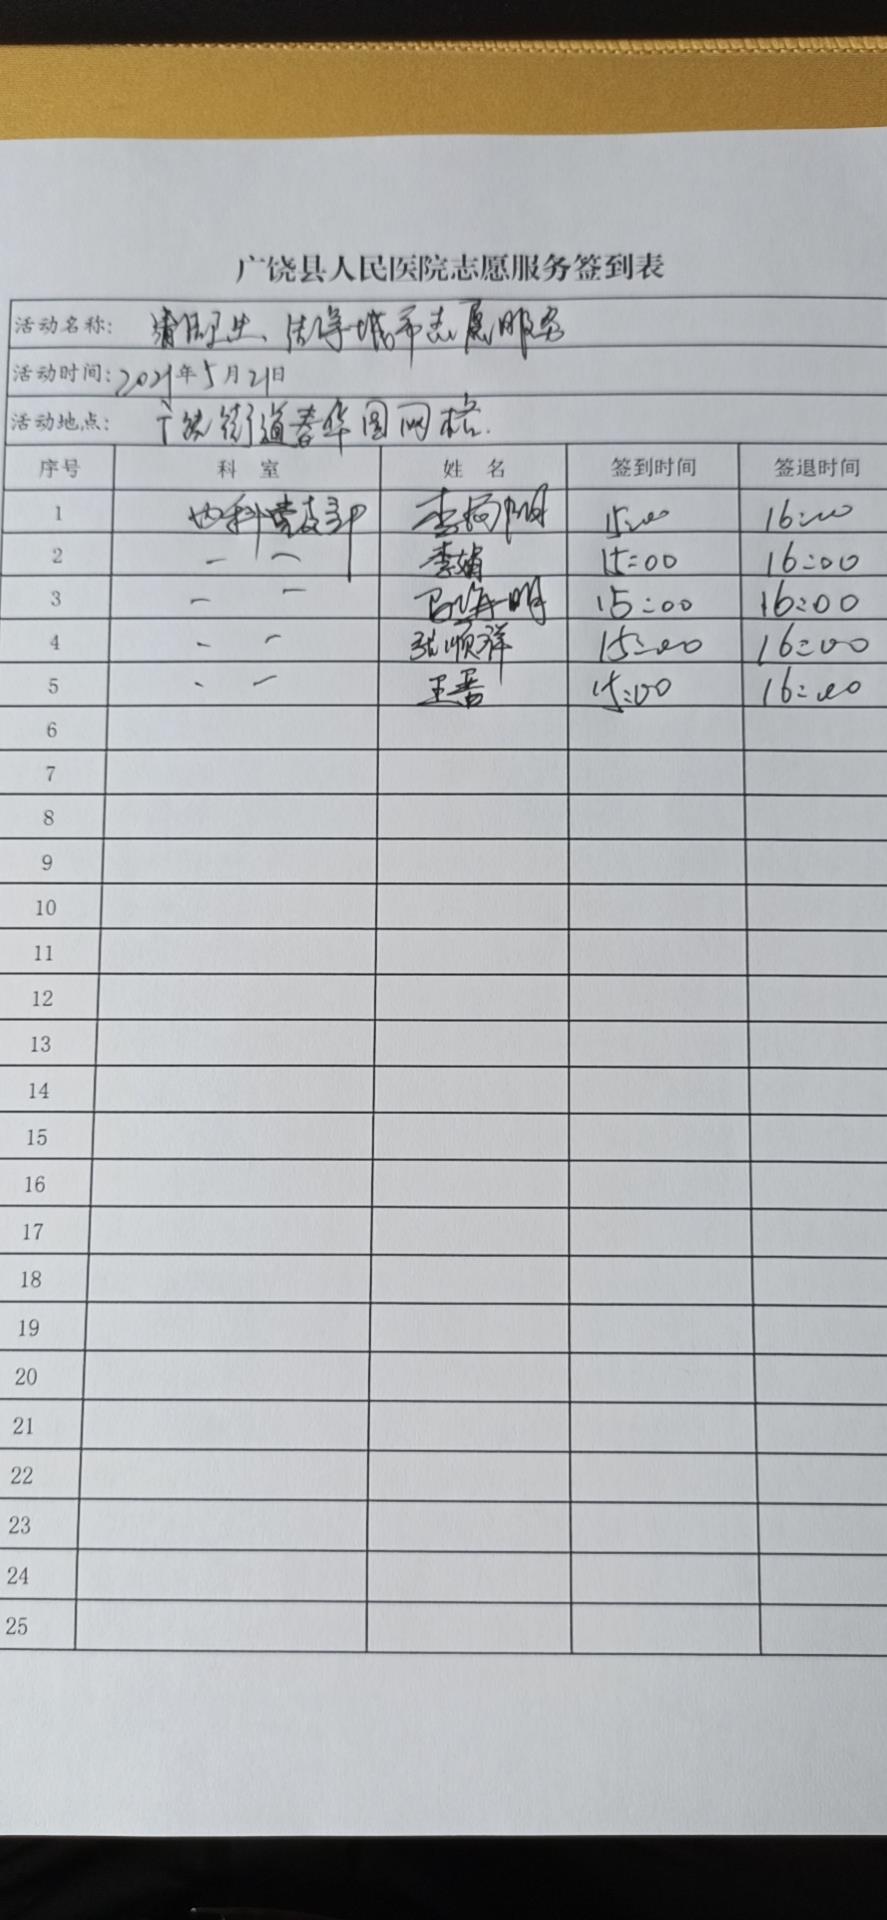 广饶县人民医院志愿服务签到表
活动名称: 清洁卫生、洁净城市志愿服务
活动时间: 2021年5月21日
活动地点: 广饶街道春华园网格.
序号 科 室 姓 名 签到时间 签退时间
1 内科党支部 李向阳 15:00 16:00
2 李娟 15:00 16:00
3 马海明 15:00 16:00
4 张顺祥 15:00 16:00
5 王 15:00 16:00
6
7
8
9
10
11
12
13
14
15
16
17
18
19
20
21
22
23
24
25